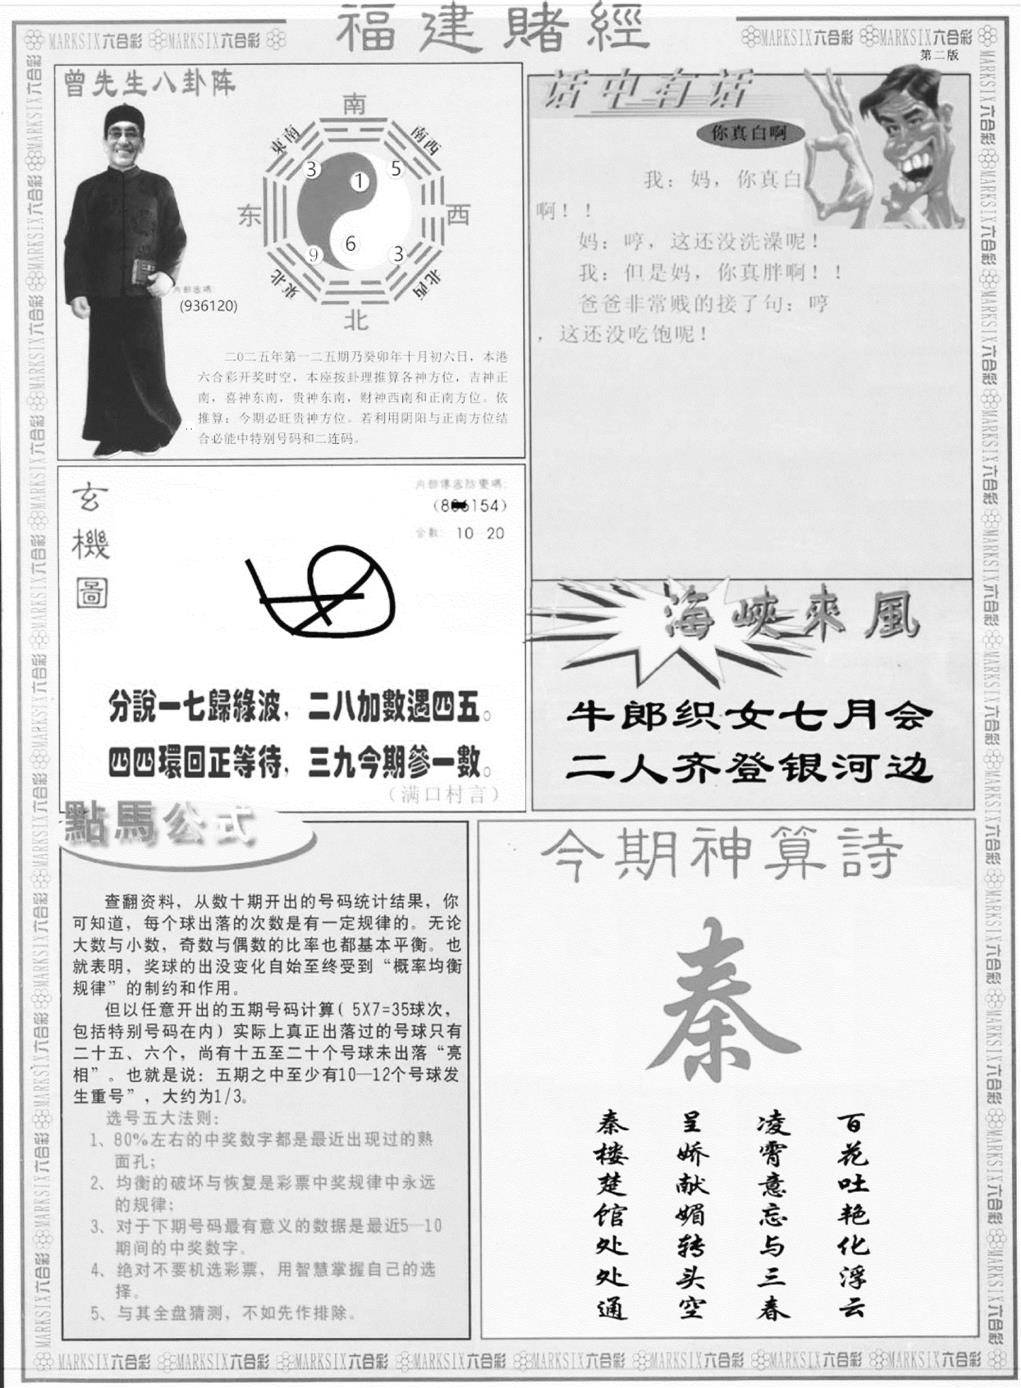 福建賭經
MARKSIX六合彩 MARKSIX六合彩
MARKSIX六合彩 MARKSIX六合彩
第二版
曾先生八卦阵
南
東南
南西
3
5
1
东
西
6
9
3
東北
北西
北
内部密碼:
(936120)
二0二五年第一二五期乃癸卯年十月初六日，本港
六合彩开奖时空，本座按卦理推算各神方位，吉神正
南，喜神东南，贵神东南，财神西南和正南方位。依
推算：今期必旺贵神方位。若利用阴阳与正南方位结
合必能中特别号码和二连码。
话中有话
你真白啊
我：妈，你真白
啊！！
妈：哼，这还没洗澡呢！
我：但是妈，你真胖啊！！
爸爸非常贱的接了句：哼
，这还没吃饱呢！
玄機圖
内部傳密防變碼:
(806154)
合數: 10 20
分說一七歸綠波，二八加數遇四五。
四四環回正等待，三九今期參一數。
（满口村言）
海峽來風
牛郎织女七月会
二人齐登银河边
點馬公式
查翻资料，从数十期开出的号码统计结果，你
可知道，每个球出落的次数是有一定规律的。无论
大数与小数，奇数与偶数的比率也都基本平衡。也
就表明，奖球的出没变化自始至终受到“概率均衡
规律”的制约和作用。
但以任意开出的五期号码计算( 5X7=35球次，
包括特别号码在内) 实际上真正出落过的号球只有
二十五、六个，尚有十五至二十个号球未出落“亮
相”。也就是说：五期之中至少有10—12个号球发
生重号”，大约为1/3。
选号五大法则：
1、80%左右的中奖数字都是最近出现过的熟
面孔；
2、均衡的破坏与恢复是彩票中奖规律中永远
的规律；
3、对于下期号码最有意义的数据是最近5—10
期间的中奖数字。
4、绝对不要机选彩票，用智慧掌握自己的选
择。
5、与其全盘猜测，不如先作排除。
今期神算詩
秦
百花吐艳化浮云
凌霄意忘与三春
呈娇献媚转头空
秦楼楚馆处处通
MARKSIX六合彩 MARKSIX六合彩 MARKSIX六合彩 MARKSIX六合彩 MARKSIX六合彩 MARKSIX六合彩 MARKSIX六合彩 MARKSIX六合彩